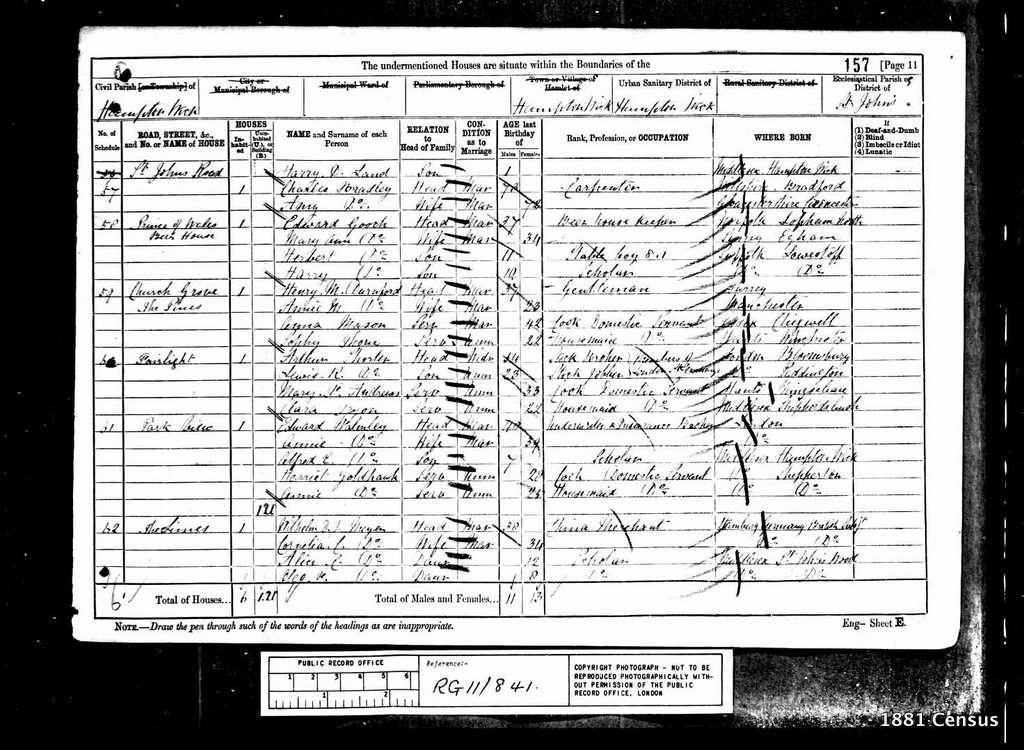 The undermentioned Houses are situate within the Boundaries of the
157 [Page 11
Civil Parish [or Township] of
City or Municipal Borough of
Municipal Ward of
Parliamentary Borough of
Town or Village or Hamlet of
Urban Sanitary District of
Rural Sanitary District of
Ecclesiastical Parish or District of
Hampton Wick Hampton Wick Hampton Wick St Johns
No. of Schedule
ROAD, STREET, &c., and No. or NAME of HOUSE
HOUSES
Inhabited
Uninhabited (U.), or Building (B.)
NAME and Surname of each Person
RELATION to Head of Family
CONDITION as to Marriage
AGE last Birthday of
Males Females
Rank, Profession, or OCCUPATION
WHERE BORN
If
(1) Deaf-and-Dumb
(2) Blind
(3) Imbecile or Idiot
(4) Lunatic
St Johns Road Harry D. Land Son 1 Middlesex Hampton Wick
57 1 Charles Bradley Head Mar Carpenter Bradford
Amy Do Wife Mar 72 Gloucestershire
58 Prince of Wales 1 Edward Gooch Head Mar 37 Beer house Keeper Norfolk Lopham North
Beer House Mary Ann Do Wife Mar 34 Surrey Egham
Herbert Do Son 11 Stable boy Suffolk Lowestoft
Harry Do Son 10 Scholar Do Do
59 Church Grove 1 Henry M. Head Mar 37 Gentleman Surrey
Annie M. Do Wife Mar 23 Manchester
Mason Serv Mar 42 Cook Domestic Servant Essex Chigwell
Serv Unm 22 Housemaid Do Hants Winchester
Fairlight 1 Arthur Head London Bloomsbury
Lewis K. Do Son Unm 23 London
Mary Andrews Serv Unm 33 Cook Domestic Servant Hants
Clara Serv Unm 22 Housemaid Do Middlesex
61 Park View 1 Edward Walmley Head Mar Underwriter & Insurance Broker London
Annie Do Wife Mar 39 Do
Alfred E. Do Son 7 Scholar Middlesex Hampton Wick
Harriet Goldhawk Serv Unm 20 Cook Domestic Servant Do Shepperton
Annie Do Serv Unm 23 Housemaid Do Do Do
1 U
62 The Limes 1 Wilhelm Head Mar 38 China Merchant Hamburg Germany British Subjt
Cornelia C. Do Wife Mar 34 Do Do
Alice C. Do Daur 12 Scholar Middlesex St Johns Wood
Do Daur 8 Do Do Do
6 Total of Houses... 6 1 U Total of Males and Females... 11 13
NOTE.—Draw the pen through such of the words of the headings as are inappropriate.
Eng— Sheet E.
PUBLIC RECORD OFFICE
1 2 3 4 5 6
1 2
Reference:-
RG 11/841.
COPYRIGHT PHOTOGRAPH - NOT TO BE
REPRODUCED PHOTOGRAPHICALLY WITH-
OUT PERMISSION OF THE PUBLIC
RECORD OFFICE, LONDON
1881 Census